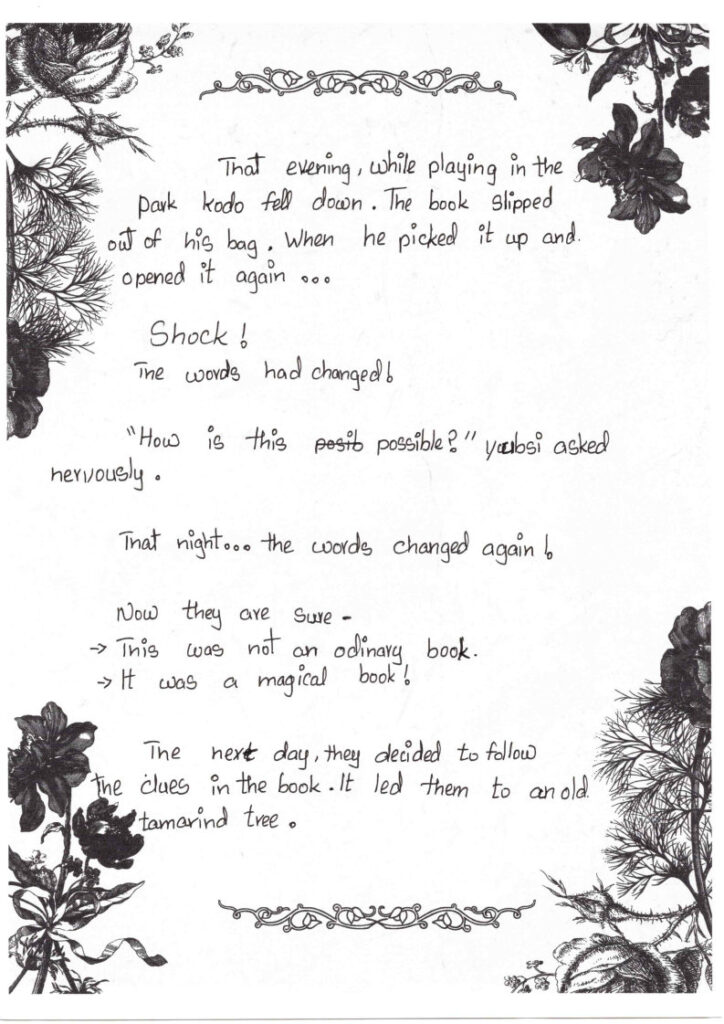 That evening, while playing in the
park kodo fell down. The book slipped
out of his bag. When he picked it up and.
opened it again ...
Shock!
The words had changed!
"How is this posib possible?" yubsi asked
nervously.
That night... the words changed again!
Now they are sure -
→ This was not an odinary book.
→ It was a magical book!
The next day, they decided to follow
the clues in the book. It led them to an old.
tamarind tree.